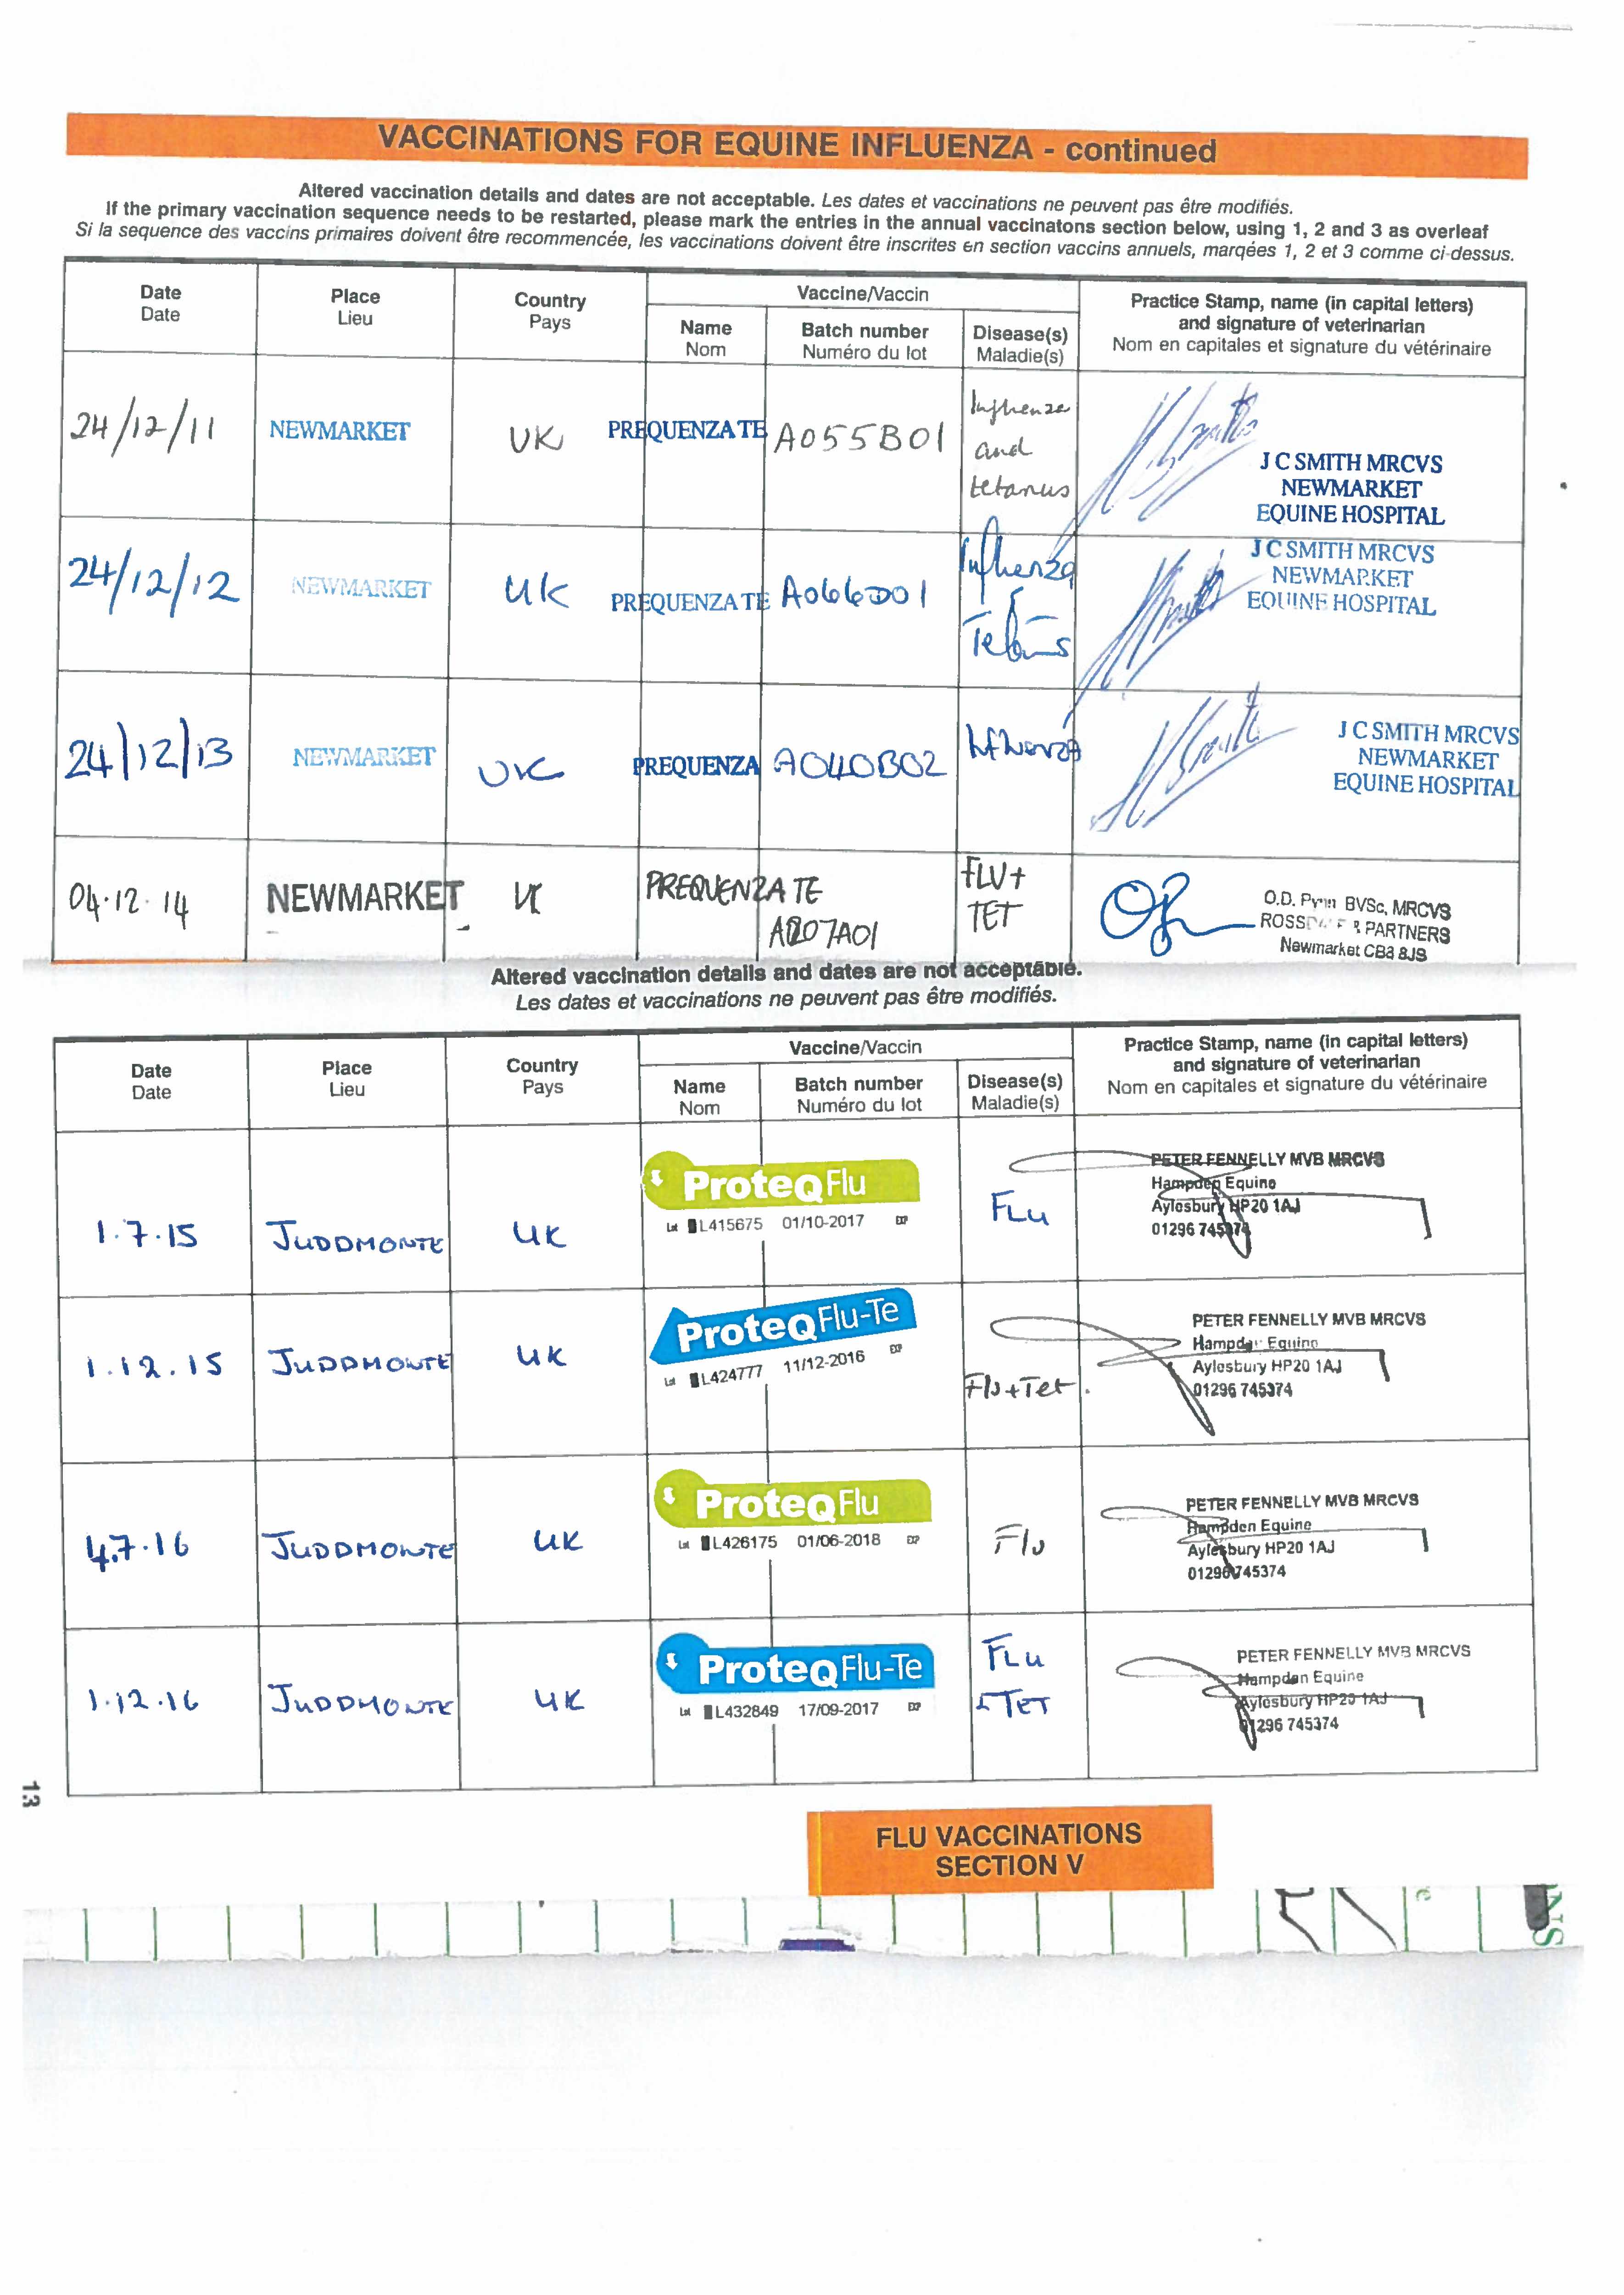 VACCINATIONS FOR EQUINE INFLUENZA - continued
Altered vaccination details and dates are not acceptable. Les dates et vaccinations ne peuvent pas être modifiés.
If the primary vaccination sequence needs to be restarted, please mark the entries in the annual vaccinatons section below, using 1, 2 and 3 as overleaf
Si la sequence des vaccins primaires doivent être recommencée, les vaccinations doivent être inscrites en section vaccins annuels, marqées 1, 2 et 3 comme ci-dessus.
Date
Date
Place
Lieu
Country
Pays
Vaccine/Vaccin
Name
Nom
Batch number
Numéro du lot
Disease(s)
Maladie(s)
Practice Stamp, name (in capital letters)
and signature of veterinarian
Nom en capitales et signature du vétérinaire
24/12/11
NEWMARKET
UK
PREQUENZA TE
A055B01
Influenza
and
tetanus
J C SMITH MRCVS
NEWMARKET
EQUINE HOSPITAL
24/12/12
NEWMARKET
UK
PREQUENZA TE
A066D01
Influenza
J C SMITH MRCVS
NEWMARKET
EQUINE HOSPITAL
24/12/13
NEWMARKET
UK
PREQUENZA
A040B02
Influenza
J C SMITH MRCVS
NEWMARKET
EQUINE HOSPITAL
04.12.14
NEWMARKET
UK
PREQUENZA TE
A207A01
FLU+
TET
O.D. Pynn BVSc, MRCVS
& PARTNERS
Newmarket CB8 8JS
Altered vaccination details and dates are not acceptable.
Les dates et vaccinations ne peuvent pas être modifiés.
Date
Date
Place
Lieu
Country
Pays
Vaccine/Vaccin
Name
Nom
Batch number
Numéro du lot
Disease(s)
Maladie(s)
Practice Stamp, name (in capital letters)
and signature of veterinarian
Nom en capitales et signature du vétérinaire
1.7.15
JUDDMONTE
UK
ProteqFlu
Lot L415675 01/10-2017 EXP
FLU
PETER FENNELLY MVB MRCVS
Hampden Equine
Aylesbury HP20 1AJ
01296 745374
1.12.15
JUDDMONTE
UK
ProteqFlu-Te
Lot L424777 11/12-2016 EXP
Flu+Tet.
PETER FENNELLY MVB MRCVS
Hampden Equine
Aylesbury HP20 1AJ
01296 745374
4.7.16
JUDDMONTE
UK
ProteqFlu
Lot L426175 01/06-2018 EXP
Flu
PETER FENNELLY MVB MRCVS
Hampden Equine
Aylesbury HP20 1AJ
01296 745374
1.12.16
JUDDMONTE
UK
ProteqFlu-Te
Lot L432849 17/09-2017 EXP
FLU
+TET
PETER FENNELLY MVB MRCVS
Hampden Equine
Aylesbury HP20 1AJ
01296 745374
13
FLU VACCINATIONS
SECTION V